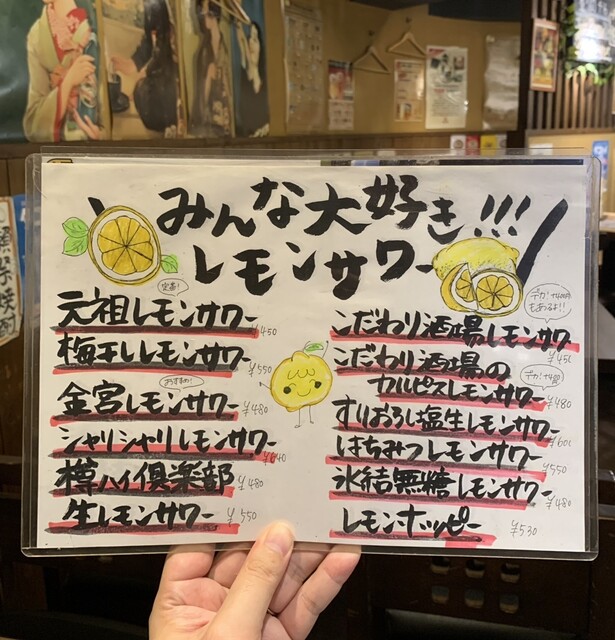 みんな大好き!!!
レモンサワー
定番!
元祖レモンサワー ¥450
梅干しレモンサワー ¥550
おすすめ!
金宮レモンサワー ¥480
シャリシャリレモンサワー ¥640
樽ハイ倶楽部 ¥480
生レモンサワー ¥550
もあるよ!!
こだわり酒場レモンサワー ¥450
こだわり酒場の
カルピスレモンサワー ¥480
すりおろし塩生レモンサワー ¥600
はちみつレモンサワー ¥550
氷結無糖レモンサワー ¥480
レモンホッピー ¥530